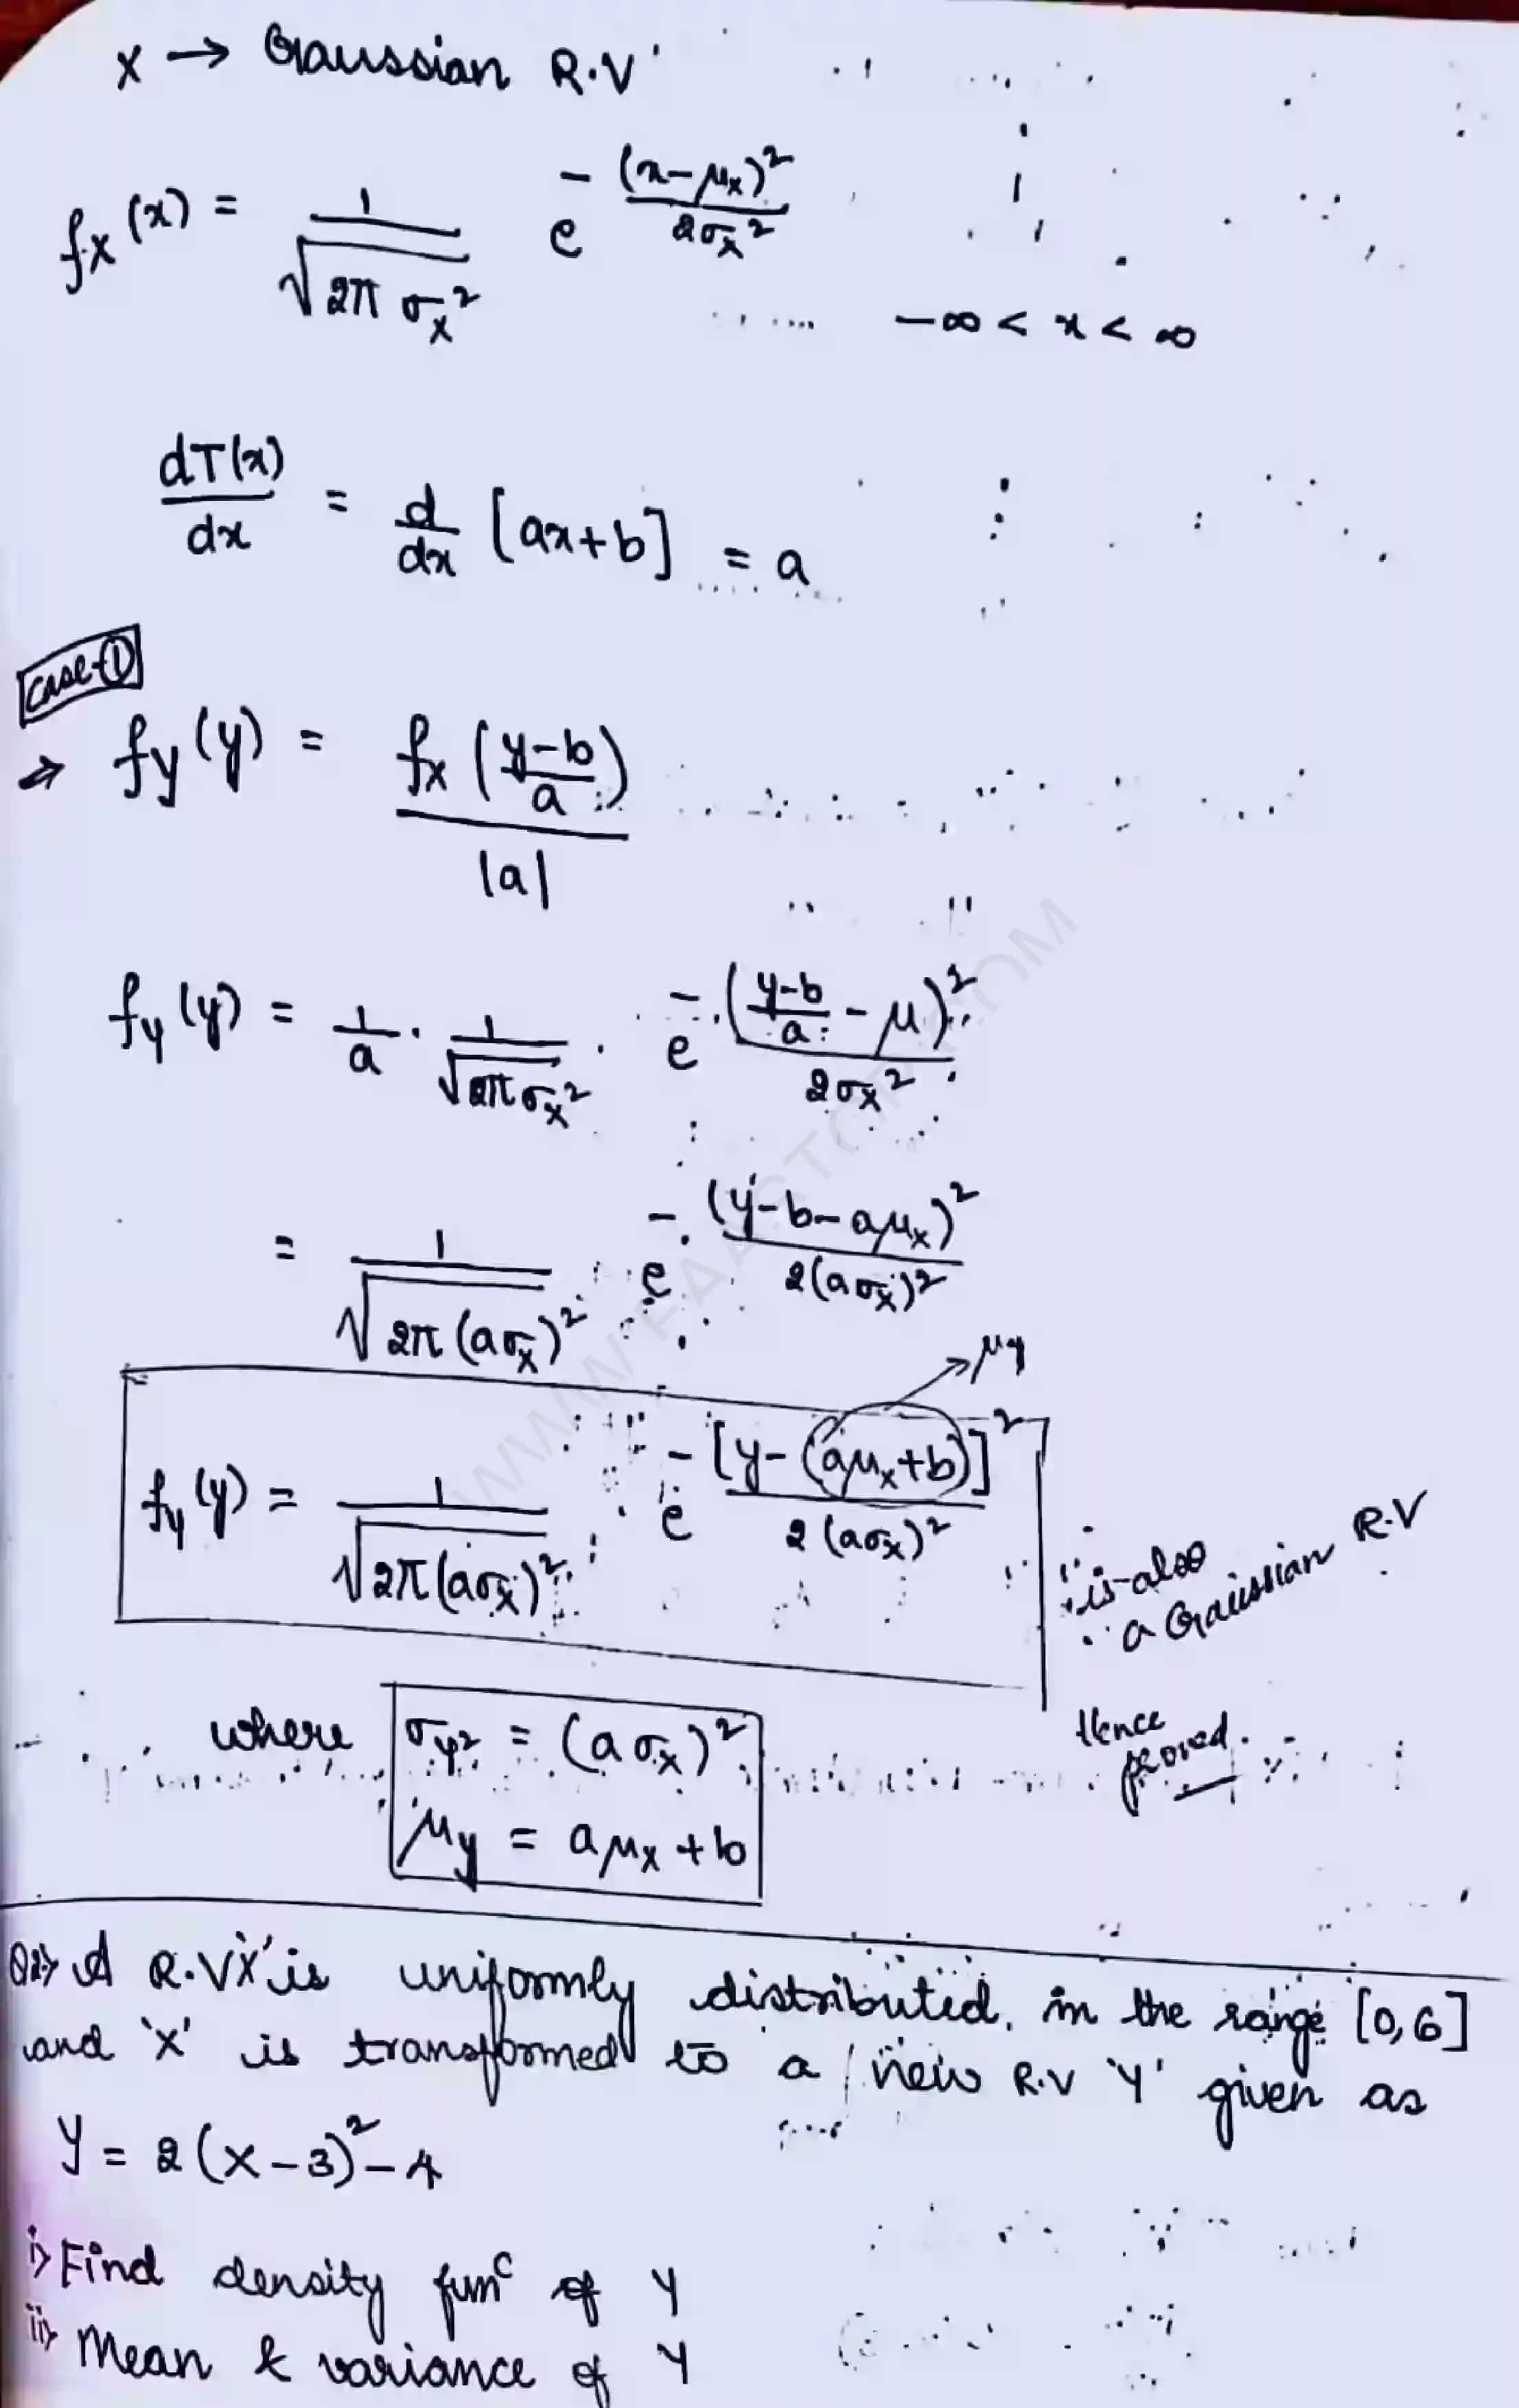 X → Gaussian R.V
fX(x) = 1/√(2π σX²) e^-(x-μx)²/2σx²
-∞ < x < ∞
dT(x)/dx = d/dx [ax+b] = a
case-①
⇒ fy(y) = fx((y-b)/a)/|a|
fy(y) = 1/a · 1/√(2πσx²) · e^-((y-b)/a - μ)²/2σx²
= 1/√(2π(aσx)²) e^-(y-b-aμx)²/2(aσx)²
→ μy
fy(y) = 1/√(2π(aσx)²) e^-[y-(aμx+b)]²/2(aσx)²
is also
a Gaussian R.V
Hence
proved.
where σy² = (aσx)²
μy = aμx + b
Q2> A R.V 'X' is uniformly distributed in the range [0,6]
and 'X' is transformed to a new R.V 'Y' given as
Y = 2(X-3)²-4
i> Find density funᶜ of Y
ii> Mean & variance of Y
WWW.FA